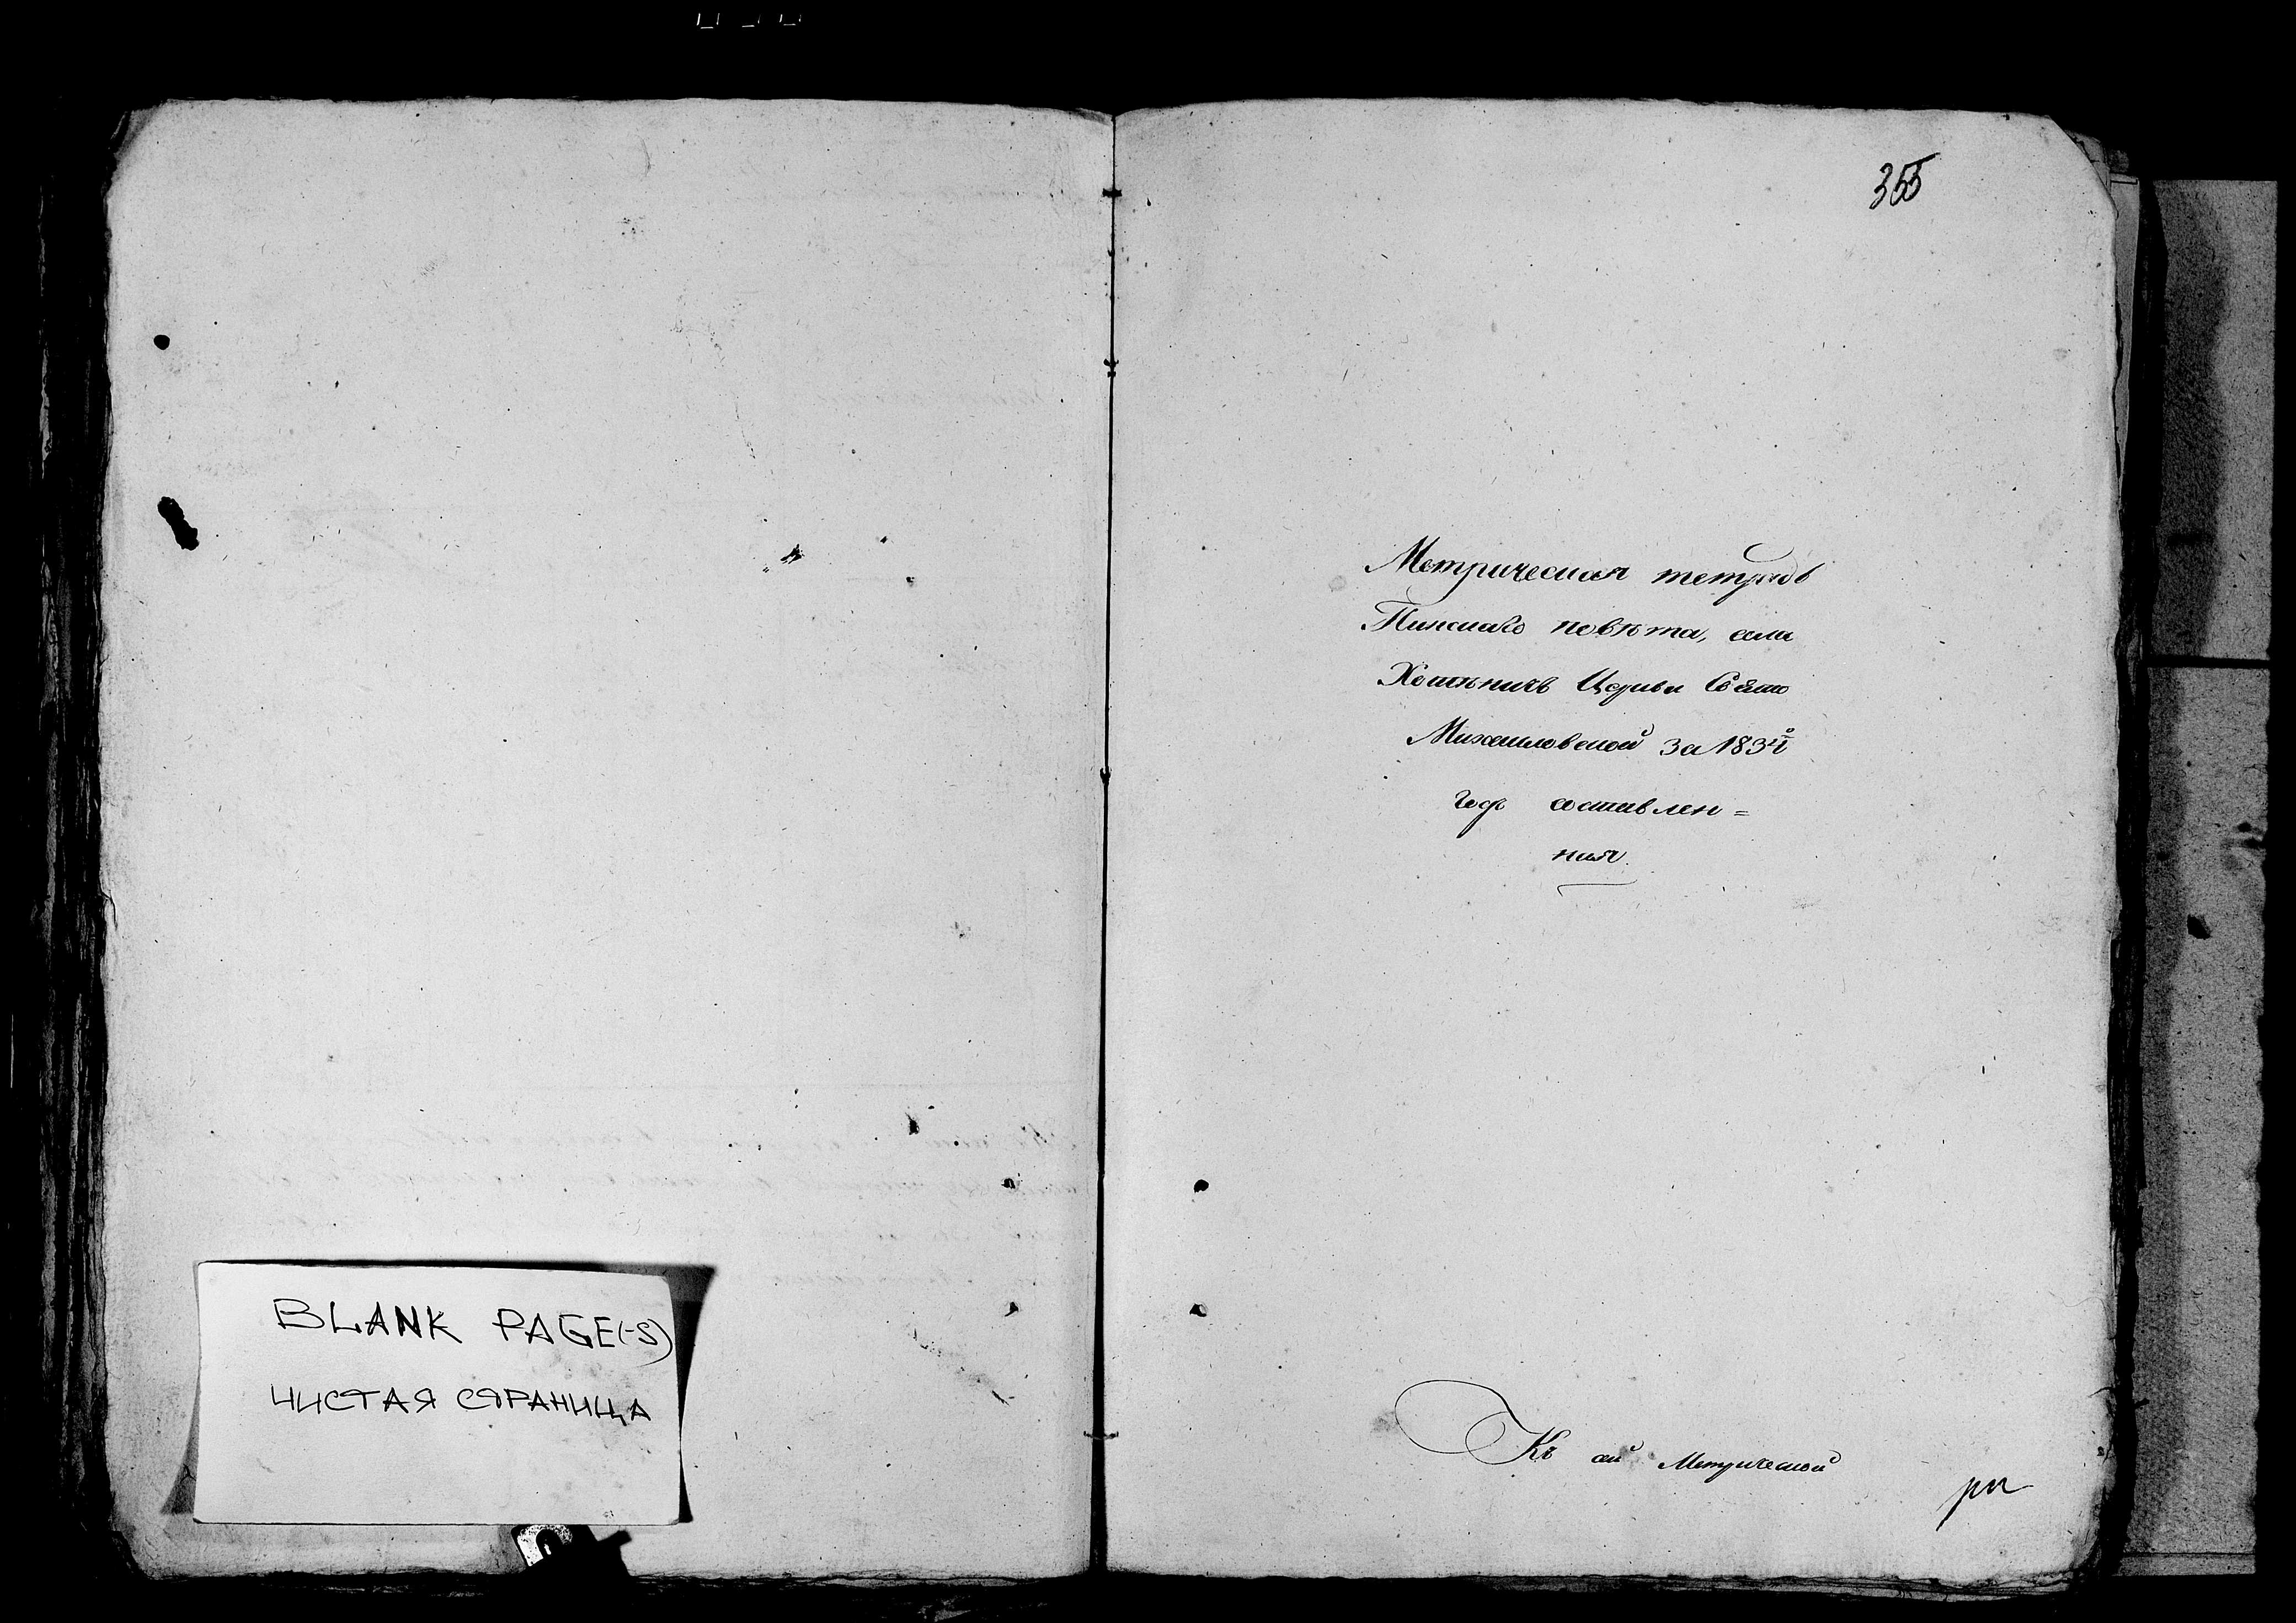 BLANK PAGE(-S)
ЧИСТАЯ СТРАНИЦА
355
Метрическая тетрадь
Пинскаго повѣта, села
Хотыничъ Церкви Свято
Михайловской за 1834й
годъ составлен=
ная.
Къ сей Метрической